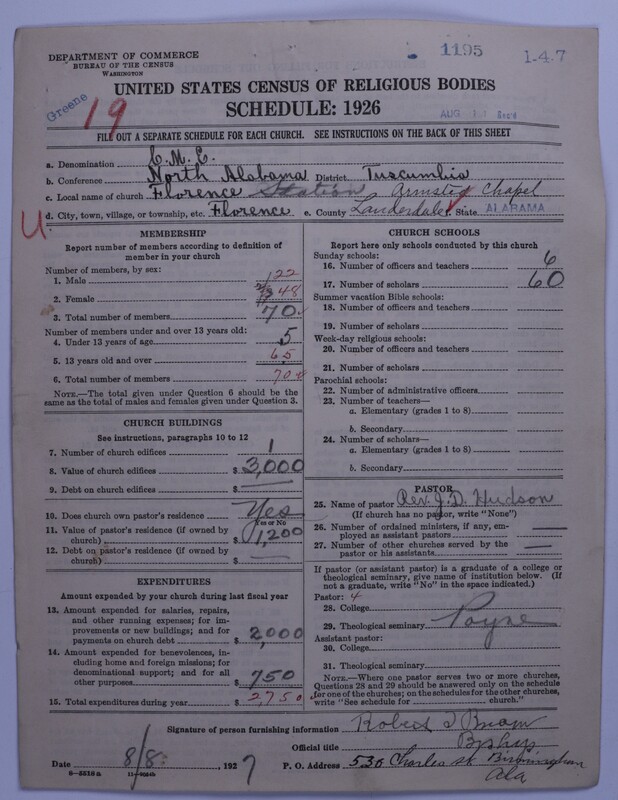 DEPARTMENT OF COMMERCE
BUREAU OF THE CENSUS
WASHINGTON
1195
1-4-7
UNITED STATES CENSUS OF RELIGIOUS BODIES
SCHEDULE: 1926
Greene
19
AUG
FILL OUT A SEPARATE SCHEDULE FOR EACH CHURCH. SEE INSTRUCTIONS ON THE BACK OF THIS SHEET
a. Denomination C.M.E.
b. Conference North Alabama District Tuscumbia
c. Local name of church Florence Station Armsted Chapel
d. City, town, village, or township, etc. Florence e. County Lauderdale f. State ALABAMA
U
MEMBERSHIP
Report number of members according to definition of member in your church
Number of members, by sex:
1. Male 22
2. Female 48
3. Total number of members 70
Number of members under and over 13 years old:
4. Under 13 years of age 5
5. 13 years old and over 65
6. Total number of members 70
NOTE.—The total given under Question 6 should be the same as the total of males and females given under Question 3.
CHURCH BUILDINGS
See instructions, paragraphs 10 to 12
7. Number of church edifices 1
8. Value of church edifices $ 3,000
9. Debt on church edifices $ —
10. Does church own pastor's residence Yes
Yes or No
11. Value of pastor's residence (if owned by church) $ 1,200
12. Debt on pastor's residence (if owned by church) $ —
EXPENDITURES
Amount expended by your church during last fiscal year
13. Amount expended for salaries, repairs, and other running expenses; for improvements or new buildings; and for payments on church debt $ 2,000
14. Amount expended for benevolences, including home and foreign missions; for denominational support; and for all other purposes $ 750
15. Total expenditures during year $ 2,750
CHURCH SCHOOLS
Report here only schools conducted by this church
Sunday schools:
16. Number of officers and teachers 6
17. Number of scholars 60
Summer vacation Bible schools:
18. Number of officers and teachers
19. Number of scholars
Week-day religious schools:
20. Number of officers and teachers
21. Number of scholars
Parochial schools:
22. Number of administrative officers
23. Number of teachers—
a. Elementary (grades 1 to 8)
b. Secondary
24. Number of scholars—
a. Elementary (grades 1 to 8)
b. Secondary
PASTOR
25. Name of pastor Rev. J. D. Hudson
(If church has no pastor, write "None")
26. Number of ordained ministers, if any, employed as assistant pastors —
27. Number of other churches served by the pastor or his assistants —
If pastor (or assistant pastor) is a graduate of a college or theological seminary, give name of institution below. (If not a graduate, write "No" in the space indicated.)
Pastor: 4
28. College
29. Theological seminary Payne
Assistant pastor:
30. College
31. Theological seminary
NOTE.—Where one pastor serves two or more churches, Questions 28 and 29 should be answered only on the schedule for one of the churches; on the schedules for the other churches, write "See schedule for church."
Signature of person furnishing information Robert T Brown
Official title
Date 8/8 1927 P. O. Address 530 Charles St. Birmingham
Ala